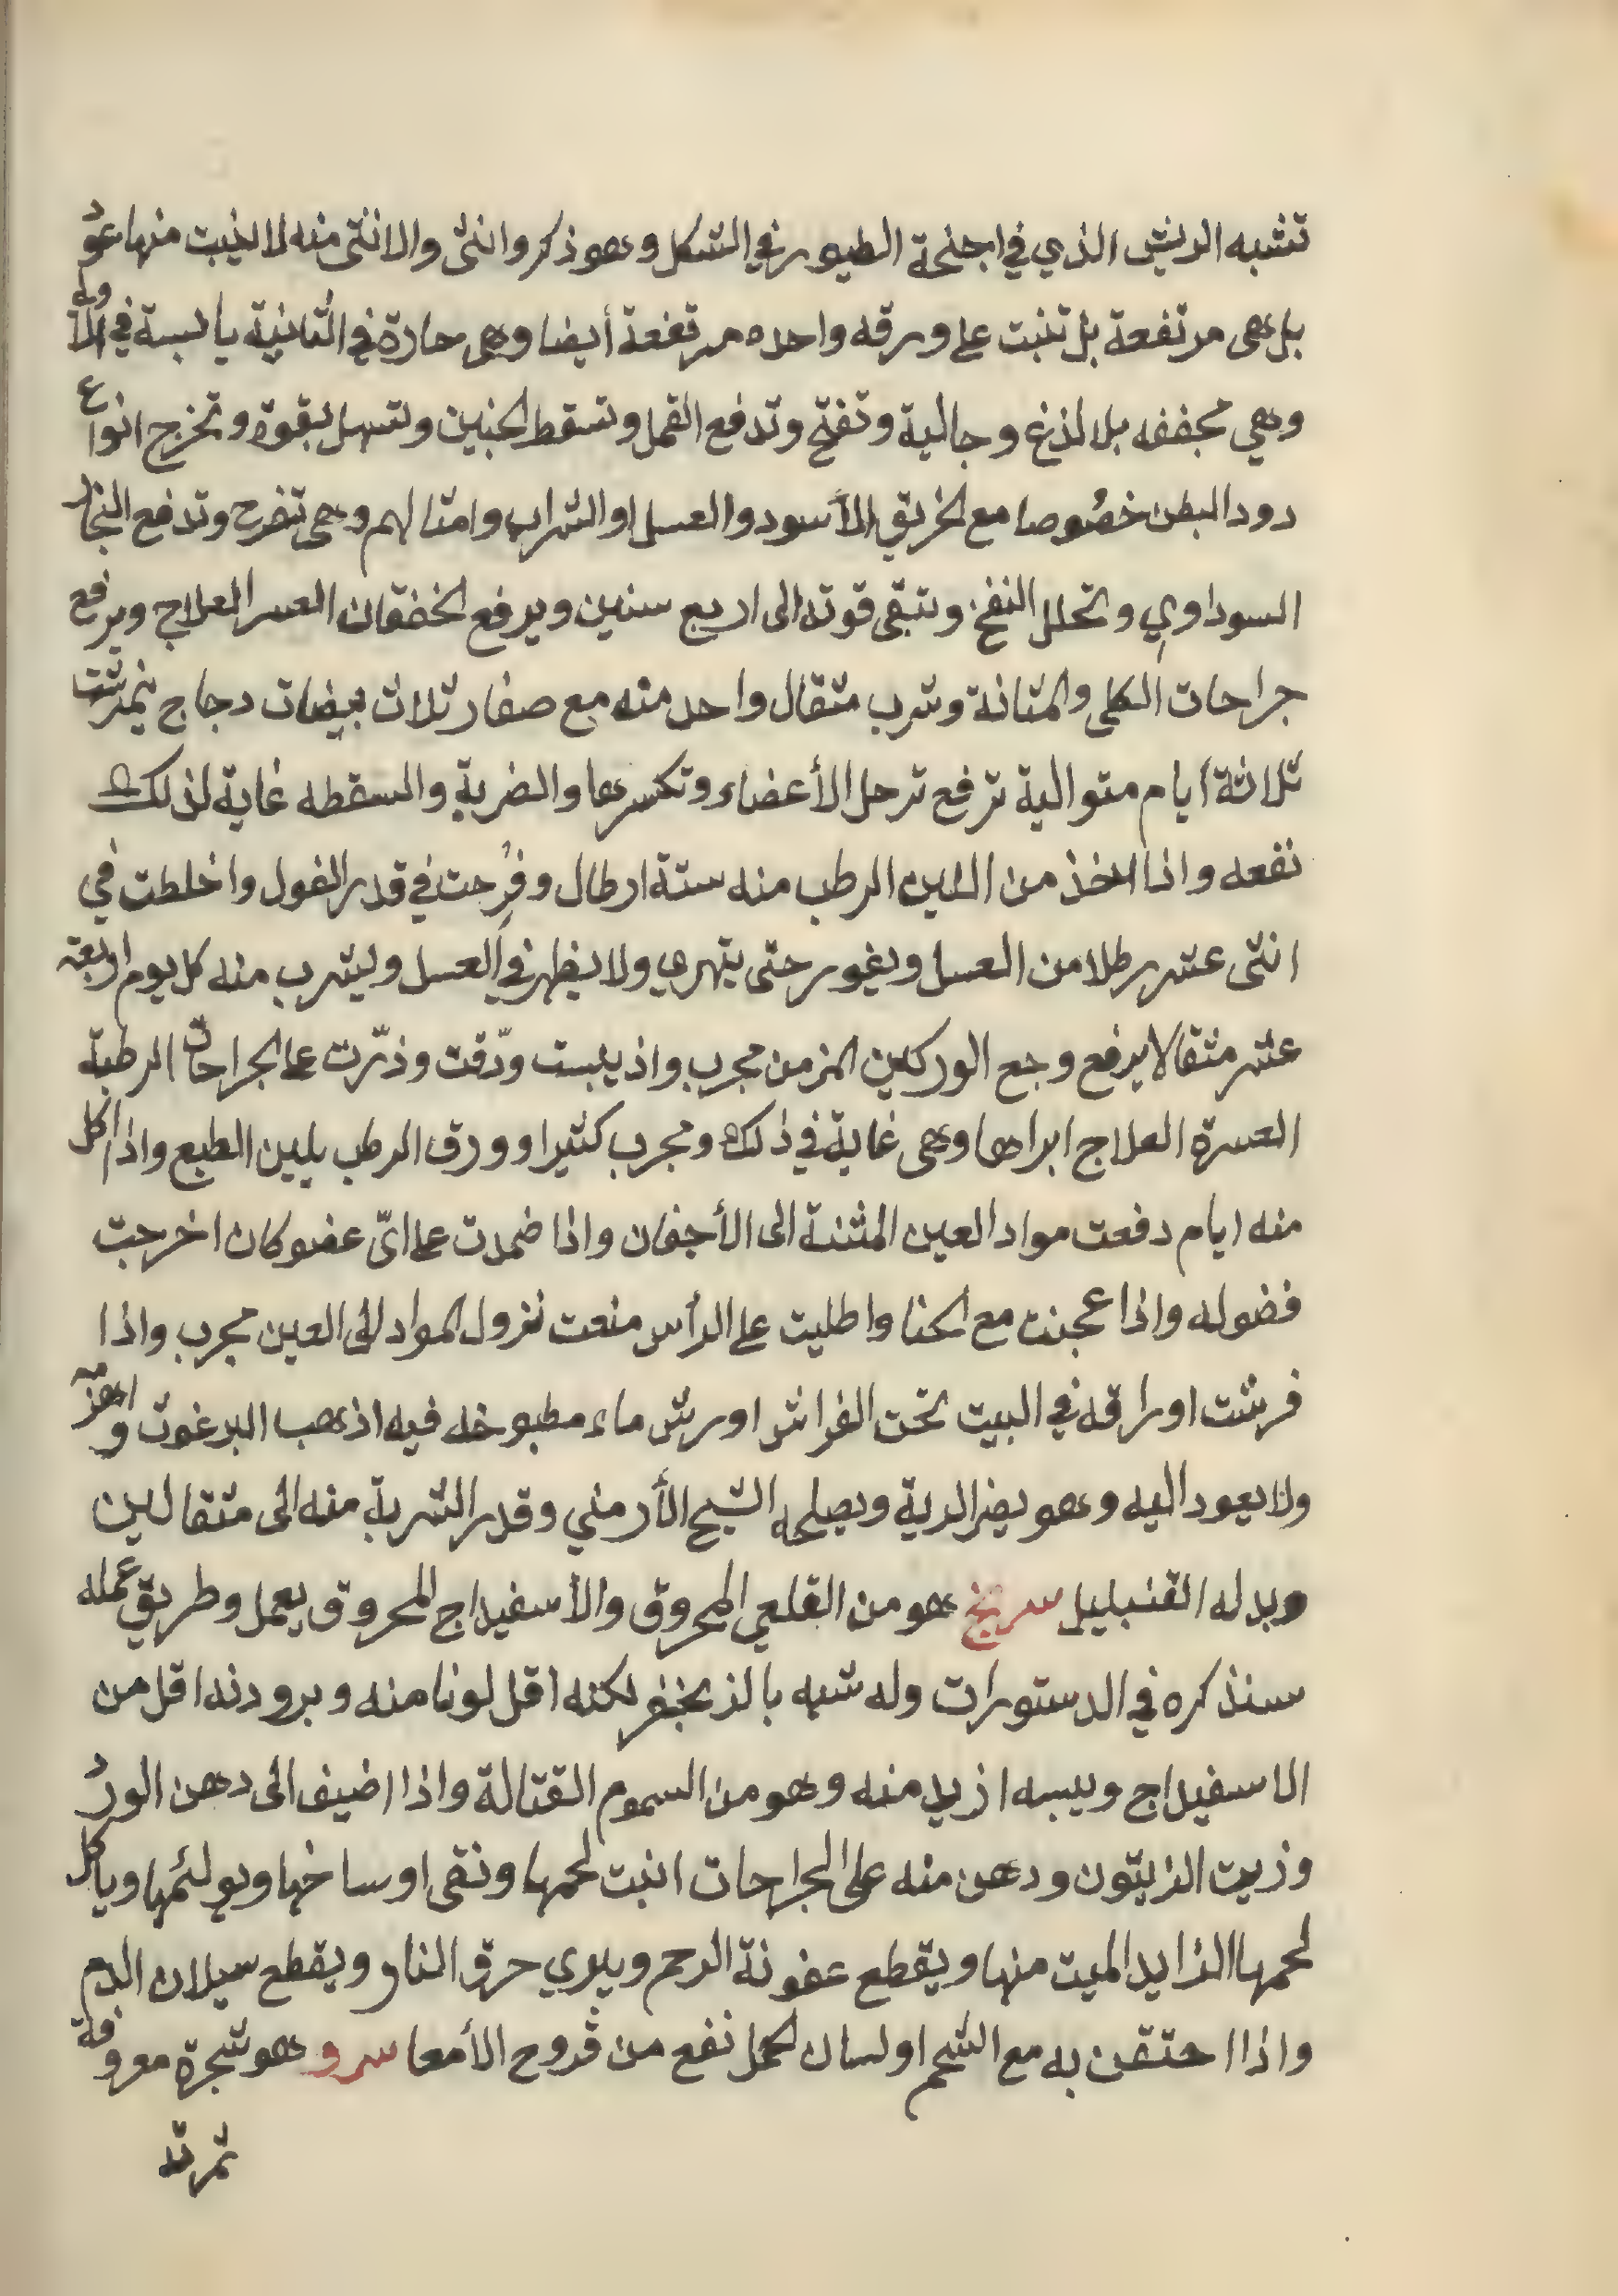 تشبه الريش الذي في اجنحة الطيور في الشكل وهو ذكر وانثى والانثى منه لا ينبت منها عود
بل هى مرتفعة بل تنبت على ورقه واحده مرتفعة أيضا وهى حارة في الثانية يابسة في الأولى
وهي مجففه بلا لذغ وجالية وتفتح وتدفع القمل وتسقط الجنين وتسهل بقوة وتخرج انواع
دود البطن خصُوصا مع الخربق الأسود والعسل او الشراب وامثالهم وهى تفرح وتدفع البخار
السوداوي وتحلل النفخ وتبقى قوته الى اربع سنين ويرفع الخفقان العسر العلاج ويرفع
جراحات الكلى والمثانة وشرب مثقال واحد منه مع صفار ثلاث بيضات دجاج نيمرشت
ثلاثة أيام متوالية ترفع ترحل الأعضاء وتكسرها والضربة والسقطه غاية لذلك
نفعه واذا اخذ من اللين الرطب منه ستة ارطال وفُرِحت في قدر الفول واخلطت في
اثنى عشر رطلا من العسل ويغور حتى يتهري ولا يظهر في العسل ويشرب منه كل يوم اربعة
عشر مثقالا يرفع وجع الوركين المزمن مجرب واذ يبست ودّقت وذرّت على الجراحات الرطبة
العسرة العلاج ابراها وهى غاية في ذلك ومجرب كثيرا وورق الرطب يلين الطبع واذا اكل
منه ايام دفعت مواد العين المنتنة الى الأجفان واذا ضمدت على ائّ عضو كان اخرجت
فضوله واذا عجنت مع الحنا واطليت على الرأس منعت نزول المواد الى العين مجرب واذا
فرشت اوراقه في البيت تحت الفراش اورش ماء مطبوخه فيه اذهب البرغوث و
ولا يعود اليه وهو يضر الرية ويصلحه الشيح الأرمني وقدر الشربة منه الى مثقالين
وبدله القنبليل سرنج هو من القلعي المحروق والأسفيداج المحروق يعمل وطريق عمله
سنذكره في الدستورات وله شبه بالزنجفر لكنه اقل لونا منه وبرودته اقل من
الاسفيداج ويبسه ازيد منه وهو من السموم القتالة واذا اضيف الى دهن الورد
وزيت الزيتون ودهن منه على الجراحات انبت لحمها ونقى اوساخها ويولئمها وياكل
لحمها الزايد الميت منها ويقطع عفونة الرحم ويبري حرق النار ويقطع سيلان الدم
واذا احتقن به مع الشحم او لسان الحمل نفع من قروح الأمعا سرو هو شجرة معروفة
ثمرته